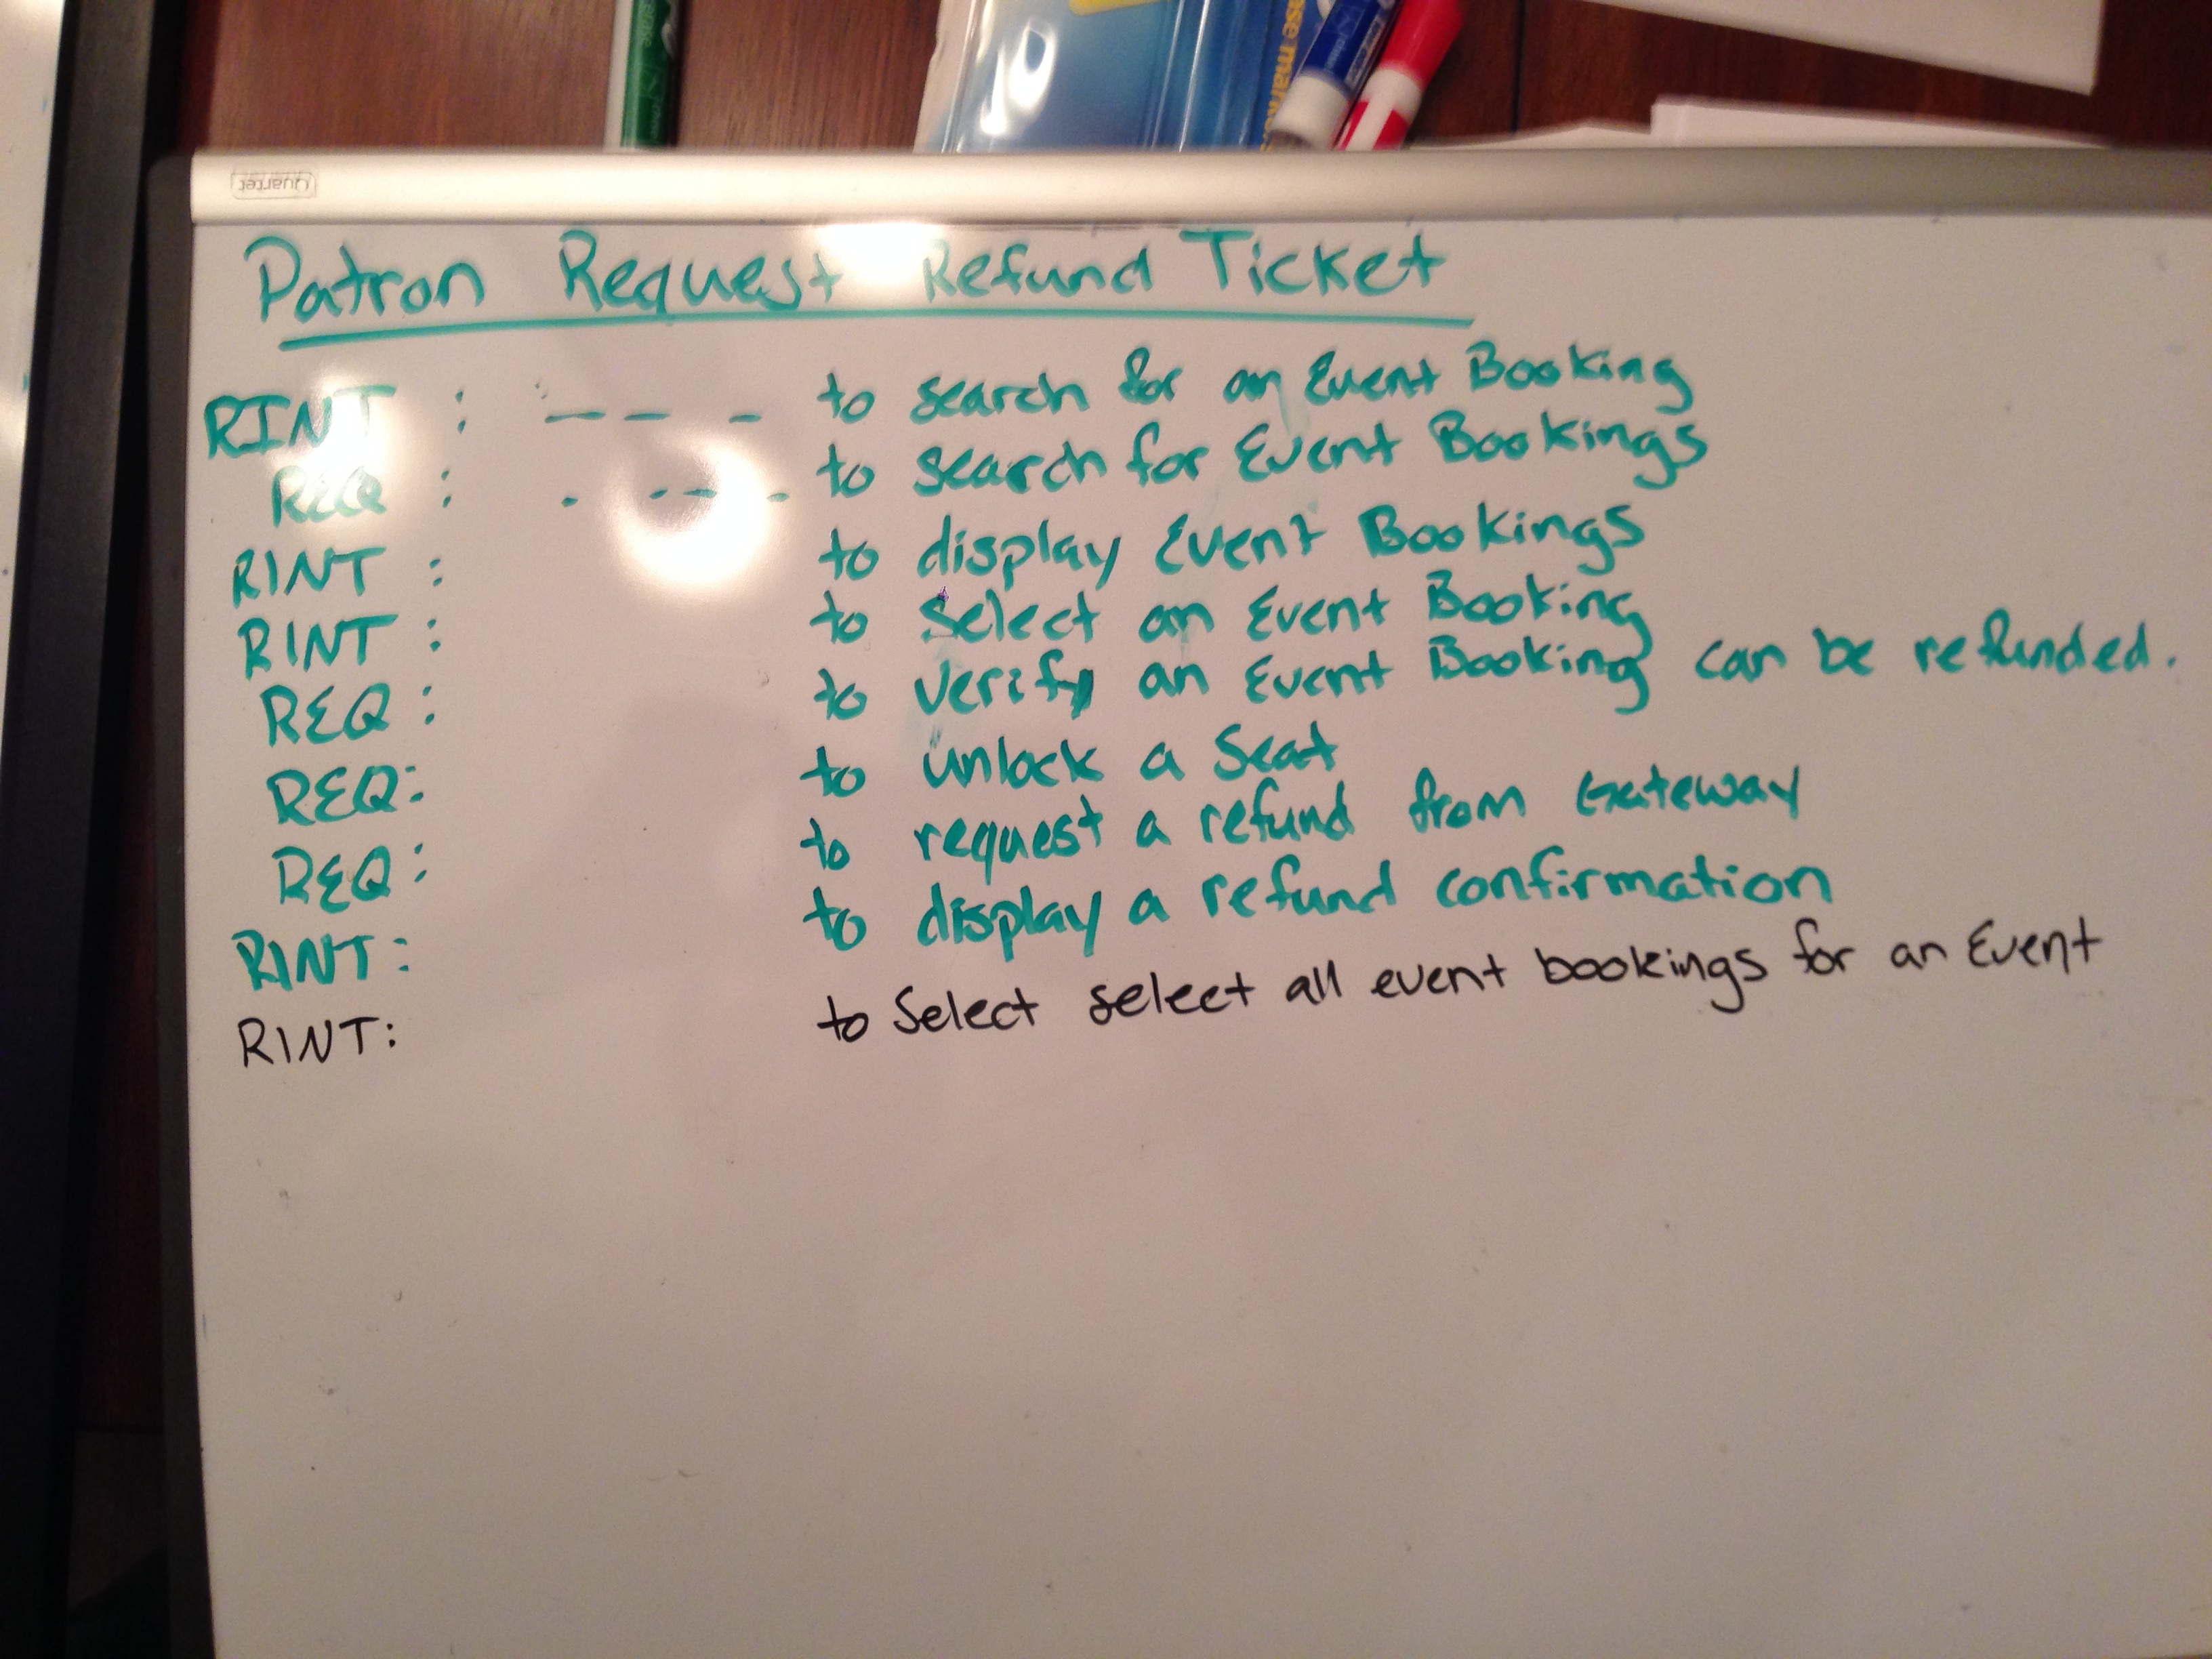 Quartet
Patron Request Refund Ticket
RINT : — — — to search for an Event Booking
REQ : - - - - to search for Event Bookings
RINT : to display Event Bookings
RINT : to select an Event Booking
REQ : to verify an Event Booking can be refunded.
REQ: to unlock a Seat
REQ: to request a refund from Gateway
RINT: to display a refund confirmation
RINT: to Select select all event bookings for an Event